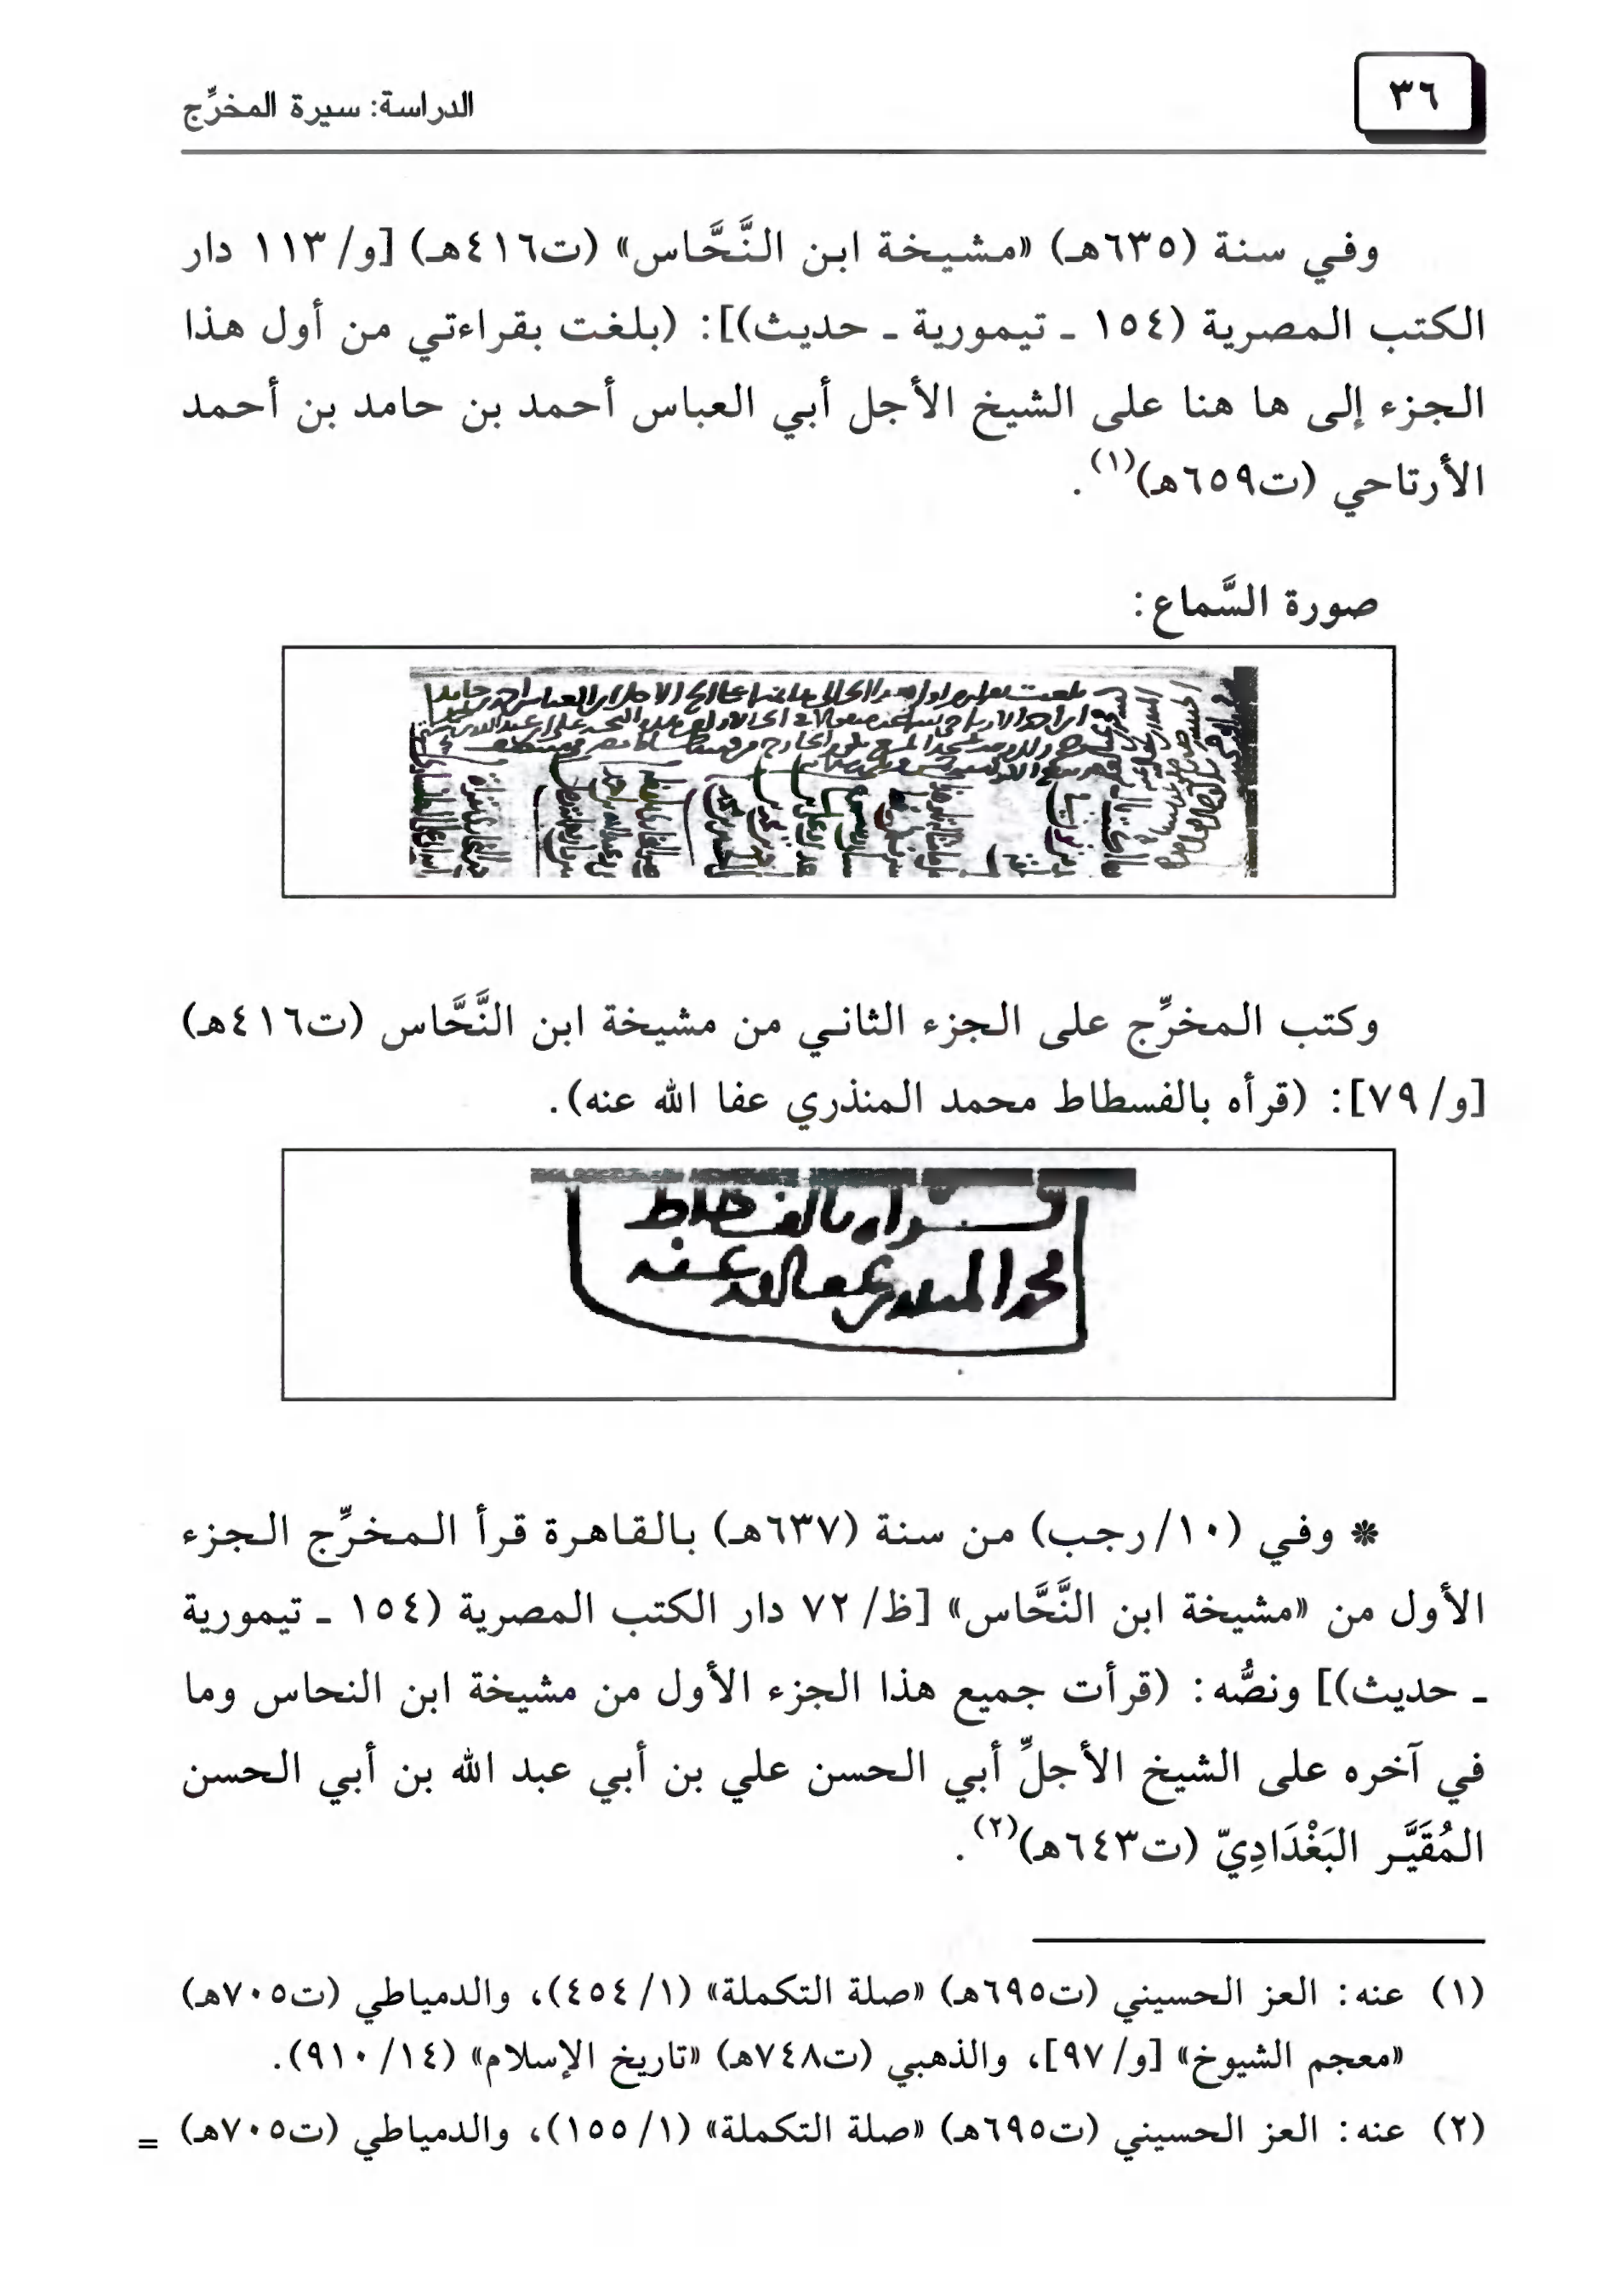 ٣٦
الدراسة: سيرة المخرِّج
وفي سنة (٦٣٥هـ) «مشيخة ابن النَّحَّاس» (ت٤١٦هـ) [و/ ١١٣ دار
الكتب المصرية (١٥٤ ـ تيمورية ـ حديث)]: (بلغت بقراءتي من أول هذا
الجزء إلى ها هنا على الشيخ الأجل أبي العباس أحمد بن حامد بن أحمد
الأرتاحي (ت٦٥٩هـ)(١).
صورة السَّماع:
وكتب المخرِّج على الجزء الثاني من مشيخة ابن النَّحَّاس (ت٤١٦هـ)
[و/ ٧٩]: (قرأه بالفسطاط محمد المنذري عفا الله عنه).
قرأه بالفسطاط
محمد المنذري عفا الله عنه
* وفي (١٠/ رجب) من سنة (٦٣٧هـ) بالقاهرة قرأ المخرِّج الجزء
الأول من «مشيخة ابن النَّحَّاس» [ظ/ ٧٢ دار الكتب المصرية (١٥٤ ـ تيمورية
ـ حديث)] ونصُّه: (قرأت جميع هذا الجزء الأول من مشيخة ابن النحاس وما
في آخره على الشيخ الأجلِّ أبي الحسن علي بن أبي عبد الله بن أبي الحسن
المُقَيَّر البَغْدَادِيّ (ت٦٤٣هـ)(٢).
(١) عنه: العز الحسيني (ت٦٩٥هـ) «صلة التكملة» (١/ ٤٥٤)، والدمياطي (ت٧٠٥هـ)
«معجم الشيوخ» [و/ ٩٧]، والذهبي (ت٧٤٨هـ) «تاريخ الإسلام» (١٤/ ٩١٠).
(٢) عنه: العز الحسيني (ت٦٩٥هـ) «صلة التكملة» (١/ ١٥٥)، والدمياطي (ت٧٠٥هـ) =